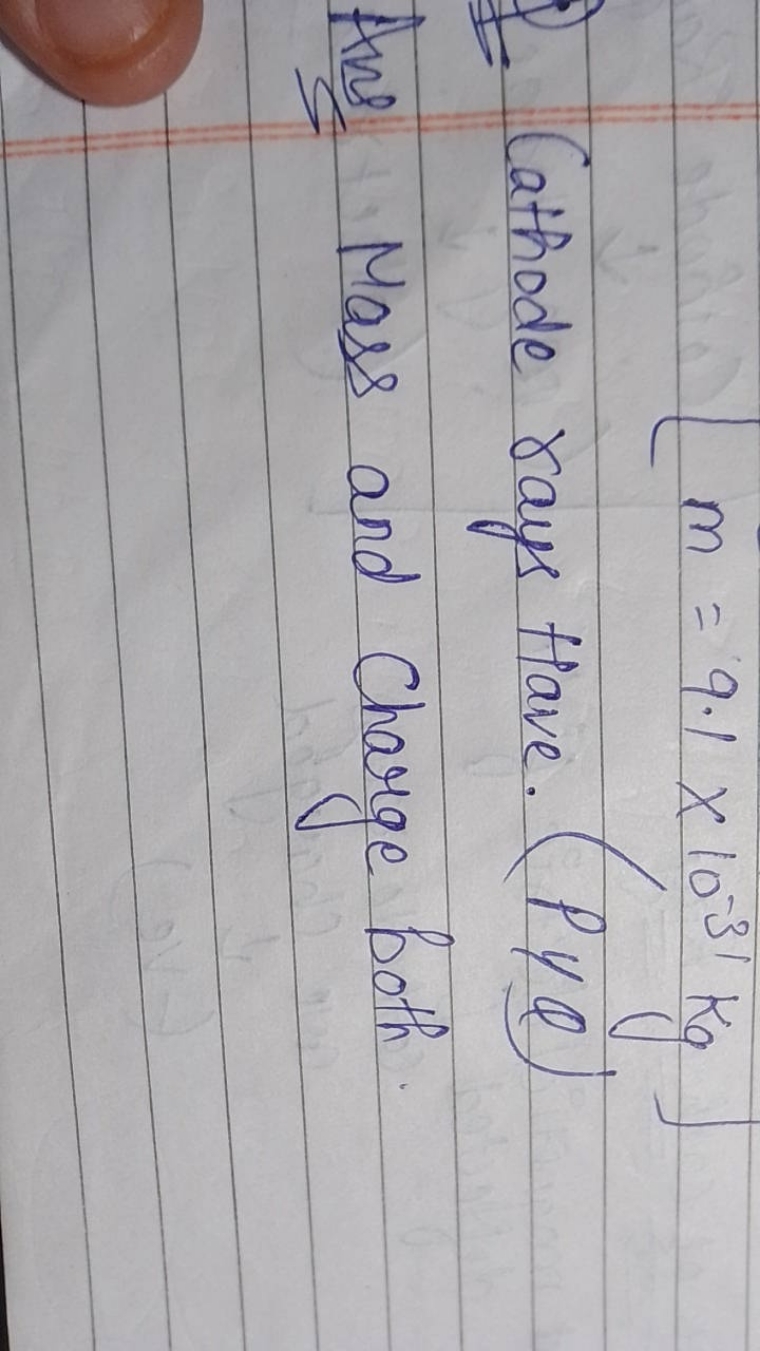 [m = 9.1 × 10⁻³¹ Kg]
Cathode rays Have. (PYQ)
Ans Mass and Charge both.